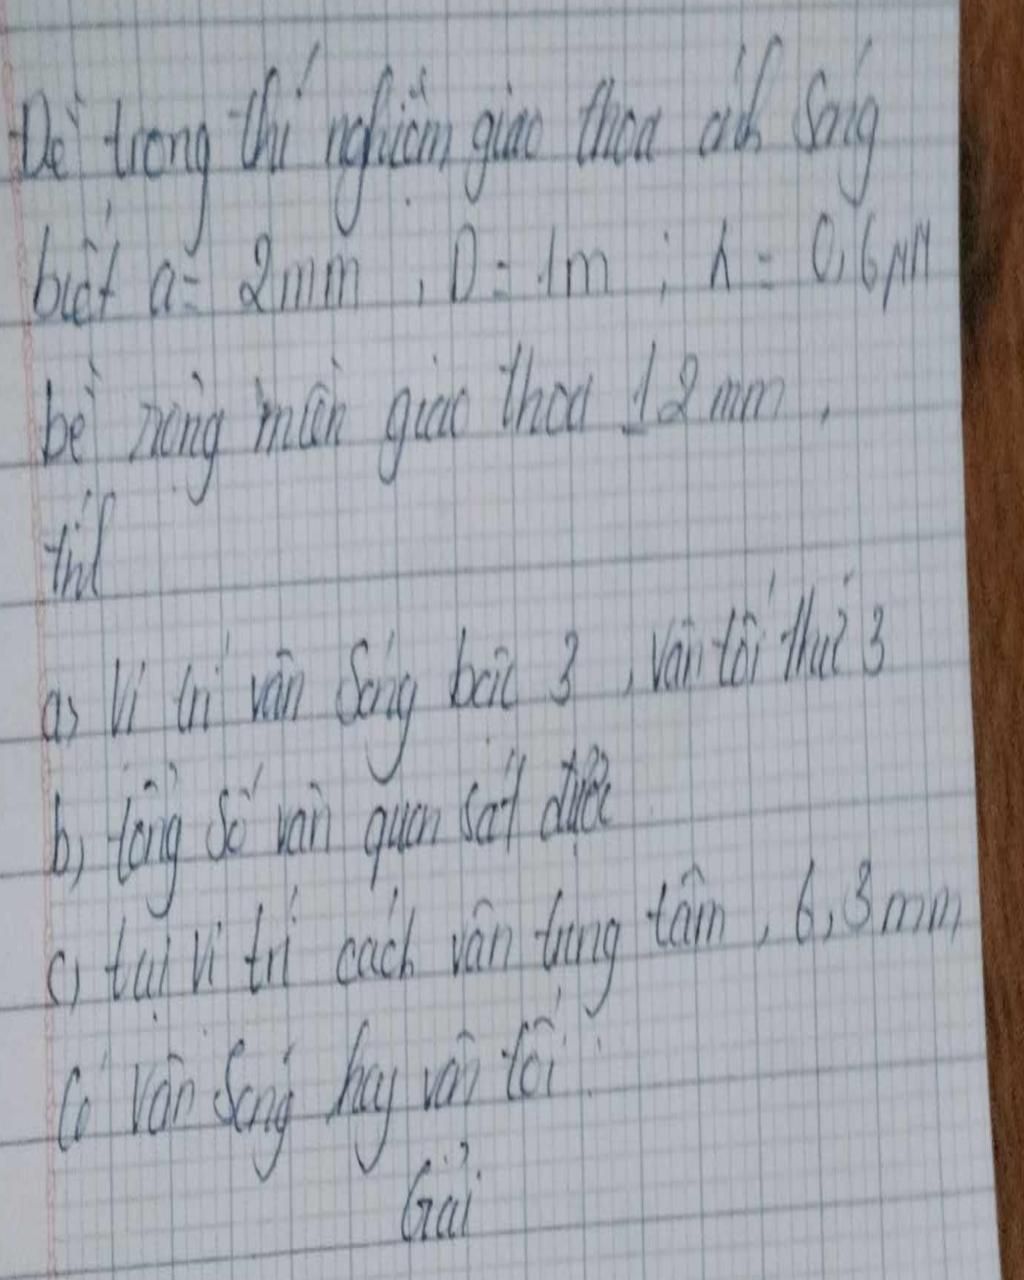 Đề trong thí nghiệm giao thoa ánh sáng
biết a = 2mm, D = 1m; λ = 0,6 μm
bề rộng màn giao thoa 12 mm.
tính
a) Vị trí vân sáng bậc 3, vân tối thứ 3
b) tổng số vân quan sát được
c) tại vị trí cách vân trung tâm, 6,3mm
Có vân sáng hay vân tối.
Giải